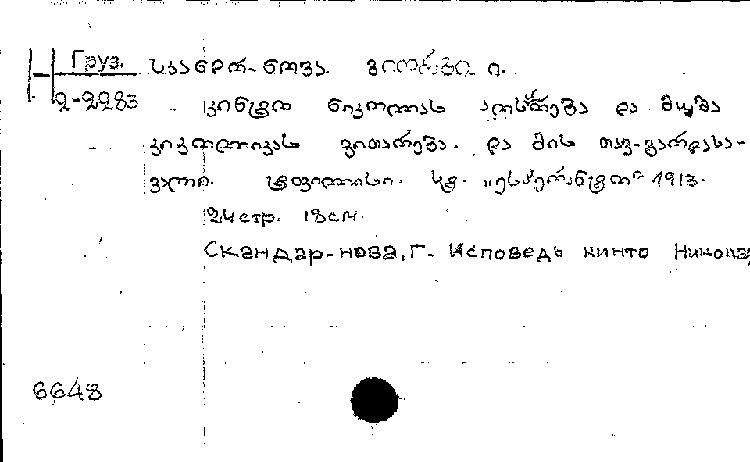 Груз. სკანდრ-ნოვა. გიორგი ი.
2-2283 კინტო ნიკოლას აღსარება და მუშა
კიკოლიკას ვითარება. და მის თავ-გარდასა-
ვალი. ტფილისი. სტ. „ესპერანტო“ 1913.
24 стр. 18 см.
Скандар-нова, Г. Исповедь кинто Никола,
6648